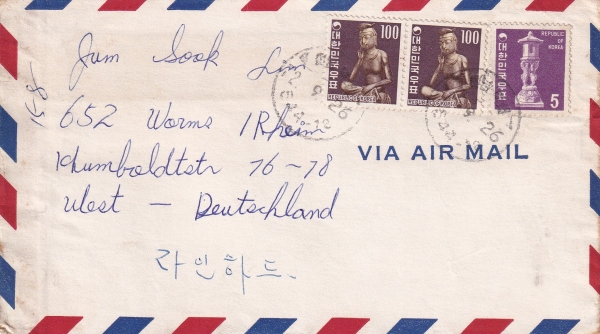 Jum Sook Lim
652 Worms / Rhein
Khumboldtstr 76-78
West - Deutschland
라인하드.
VIA AIR MAIL
100
대한민국우표
REPUBLIC OF KOREA
100
대한민국우표
REPUBLIC OF KOREA
REPUBLIC OF KOREA
대한민국우표
5